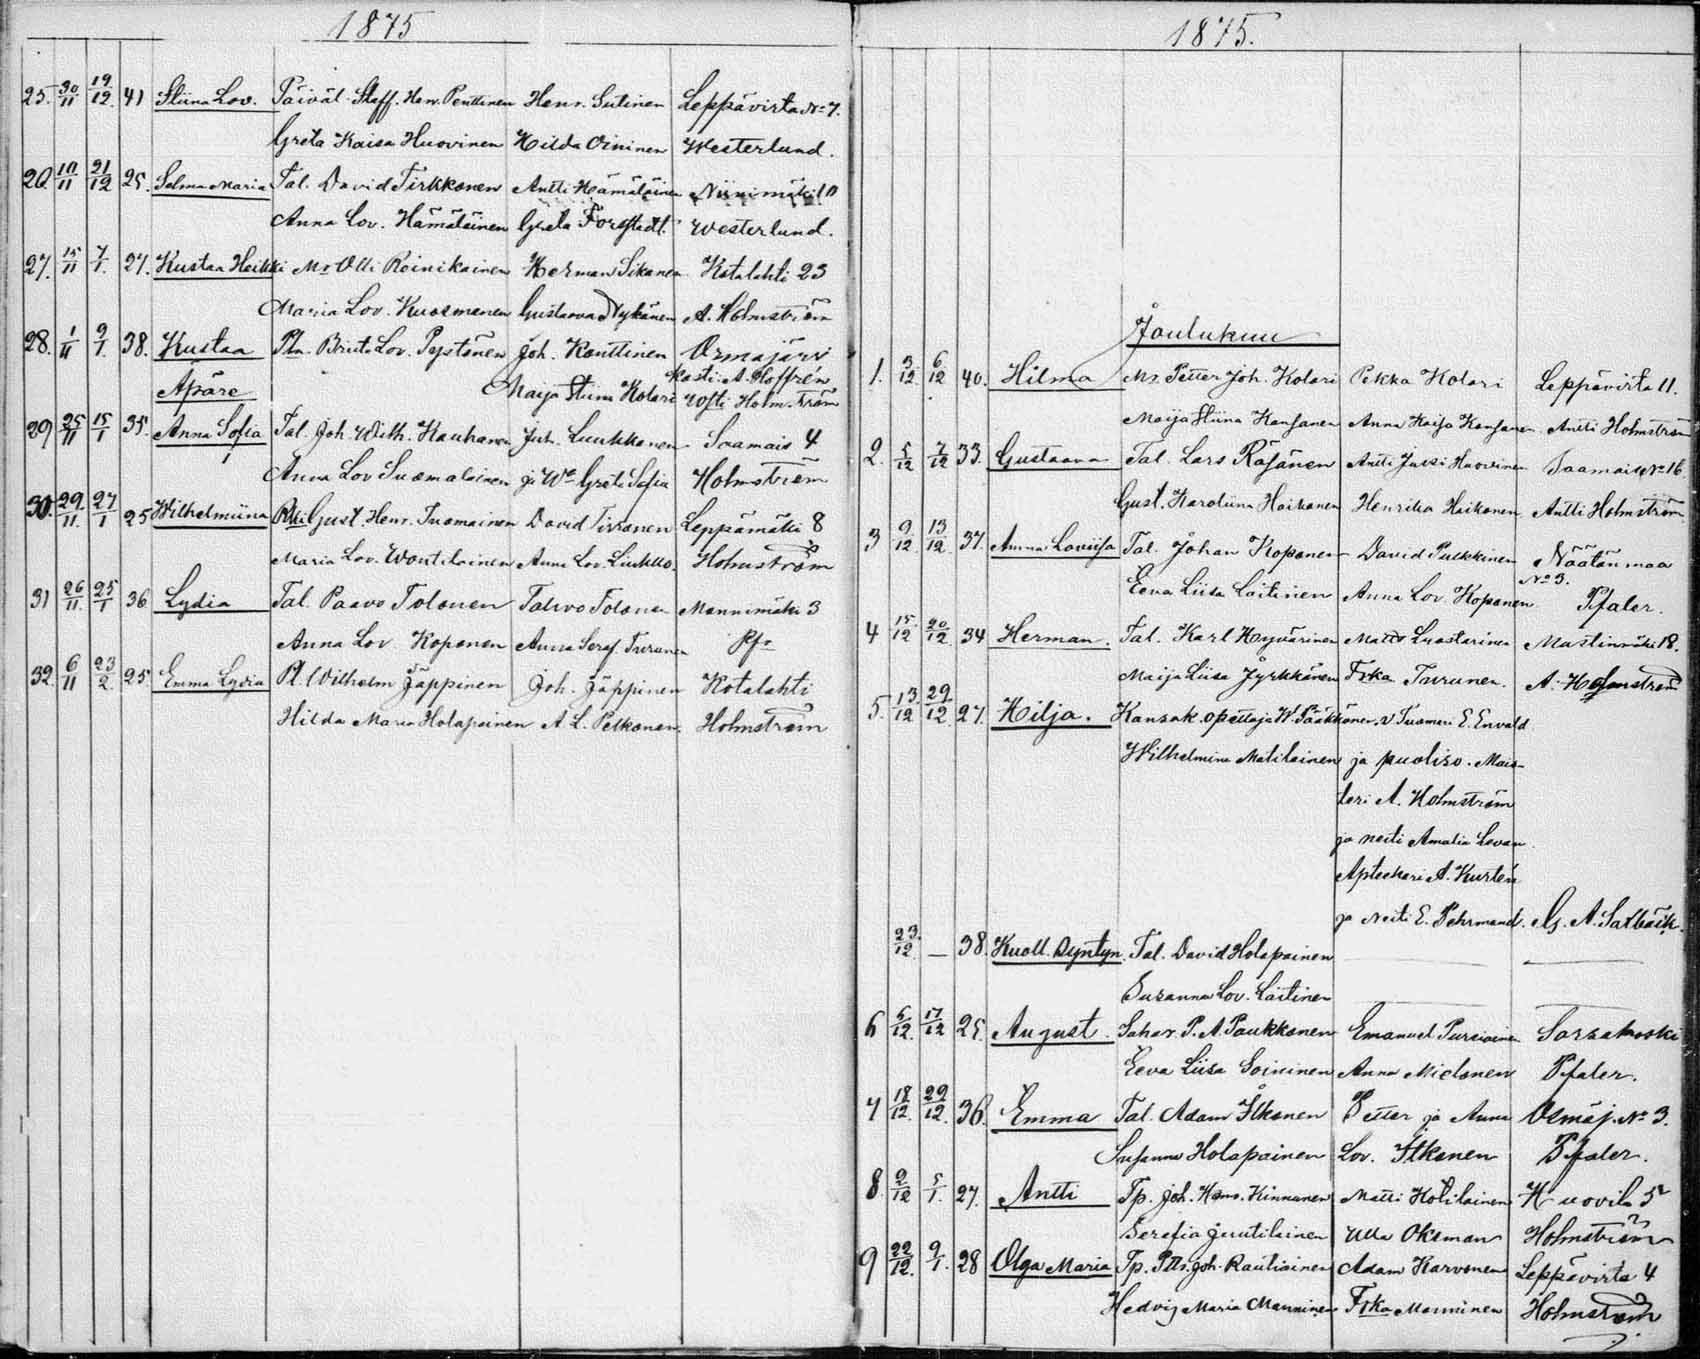 1875
25. 30/11 19/12 41 Stiina Lov. Päiväl. Staff. Henr. Penttinen Henr. Sutinen Leppävirta No 7.
Greta Kaisa Huovinen Hilda Oininen Westerlund.
26. 10/11 21/12 25. Selma Maria Tal. David Tirkkonen Antti Hämäläinen Niinimäki 10
Anna Lov. Hämäläinen Greta Forsstadt. Westerlund.
27. 15/11 7/1. 27. Kustaa Heikki Mr Olli Reinikainen Herman Sikanen Kotalahti 23
Maria Lov. Kuosmanen Gustaava Nykänen A. Holmström
28. 1/11 9/1. 38. Kustaa Pln. Brita Lov. Pystönen Joh. Konttinen Osmajärvi
Äpäre Maija Stiina Kolari kasti. A. Hoffrén
Holmström
29 25/11 15/1 35. Anna Sofia Tal. Joh. Wilh. Kauhanen Joh. Luukkonen Saamais 4
Anna Lov Suomalainen ja Wo Greta Sofia Holmström
30. 29/11. 27/1 25 Wilhelmiina Rki Gust. Henr. Tuomainen David Tirronen Leppämäki 8
Maria Lov. Wontilainen Anna Lov. Liukko. Holmström
31 26/11. 25/1 36 Lydia Tal. Paavo Tolonen Taavo Tolonen Mannimäki 3
Anna Lov Koponen Anna Seraf. Turunen Pfr
32. 6/11 23/2. 25. Emma Lydia Pl. Wilhelm Jäppinen Joh. Jäppinen Kotalahti
Hilda Maria Holapainen A. L. Pelkonen. Holmström
1875.
Joulukuu
1. 3/12 6/12 40. Hilma Mr. Petter Joh. Kolari Pekka Kolari Leppävirta 11.
Maija Stiina Kansanen Anna Kaisa Kansanen Antti Holmström
2. 5/12 7/12 33. Gustaava Tal. Lars Räsänen Antti Jussi Huovinen Saamais No 16
Gust. Karoliina Haikonen Henrika Haikonen Antti Holmström
3 9/12 13/12 37. Anna Loviisa Tal. Johan Koponen David Pulkkinen Näätänmaa
No 3.
Eeva Liisa Laitinen Anna Lov. Koponen Pfaler.
4 15/12 20/12 34 Herman. Tal. Karl Hyvärinen Matts Luostarinen Mustinmäki 18.
Maija Liisa Jyrkkänen Frka Turunen. A. Holmström
5. 13/12 29/12 27. Hilja. Kansak. opettaja W. Pääkkönen. v Tuomari E. Enwald
Wilhelmina Matilainen ja puoliso. Mais-
teri A. Holmström
ja neiti Amalia Levan
Apteekari A. Kurtén
ja Neiti E. Pehrmand. G. A. Saxbäck.
23/12 — 38. Kuoll. syntyn. Tal. David Holapainen
Susanna Lov. Laitinen
6 5/12. 17/12 25. August Sahar. P. A. Paukkonen Emanuel Pursiainen Sorsakoski
Eeva Liisa Soininen Anna Mielonen Pfaler.
7 18/12. 29/12. 36. Emma Tal. Adam Itkonen Petter ja Anna Osmaj. No 3.
Susanna Holapainen Lov. Itkonen Pfaler.
8. 2/12 5/1. 27. Antti Tp. Joh. Henr. Kinnunen Matti Kotilainen Huovila 5
Serafia Juutilainen Ulla Oksman Holmström
9 22/12. 9/1. 28 Olga Maria Tp. Pttr. Joh. Rautiainen Adam Karvonen Leppävirta 4
Hedvig Maria Manninen Frka Manninen Holmström